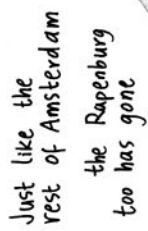 Just like the
rest of Amsterdam
the Rapenburg
too has gone